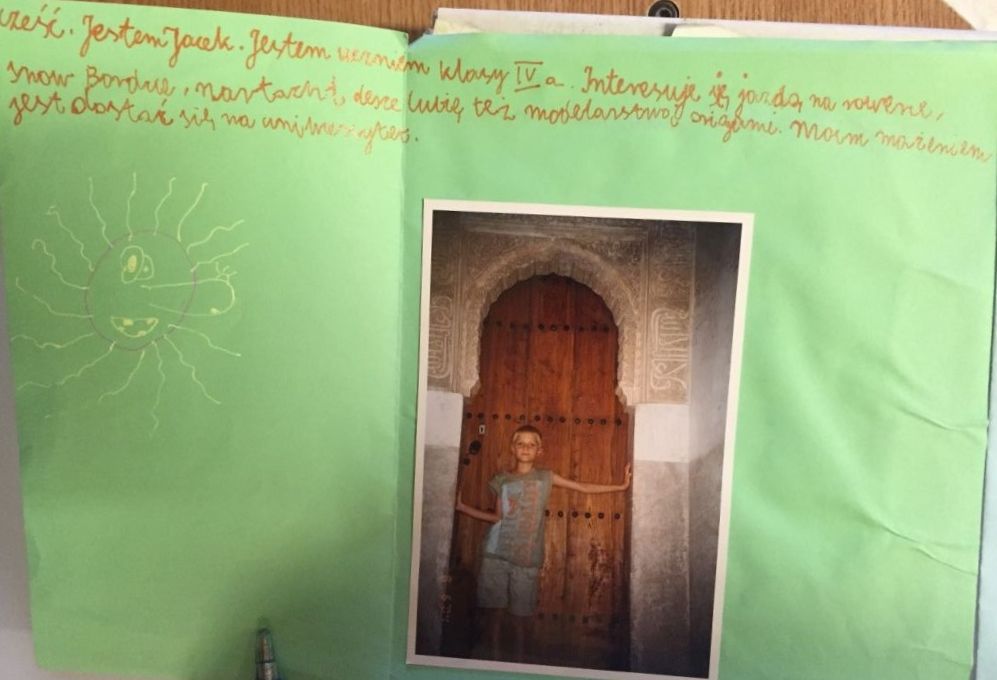 cześć. Jestem Jacek. Jestem uczniem klasy IV a. Interesuje ię jazdą na rowere,
snow Bordue, nartach i, desce lubię też modelarstwo, origami. Moim mażeniem
jest dostać się na uniwersytet.